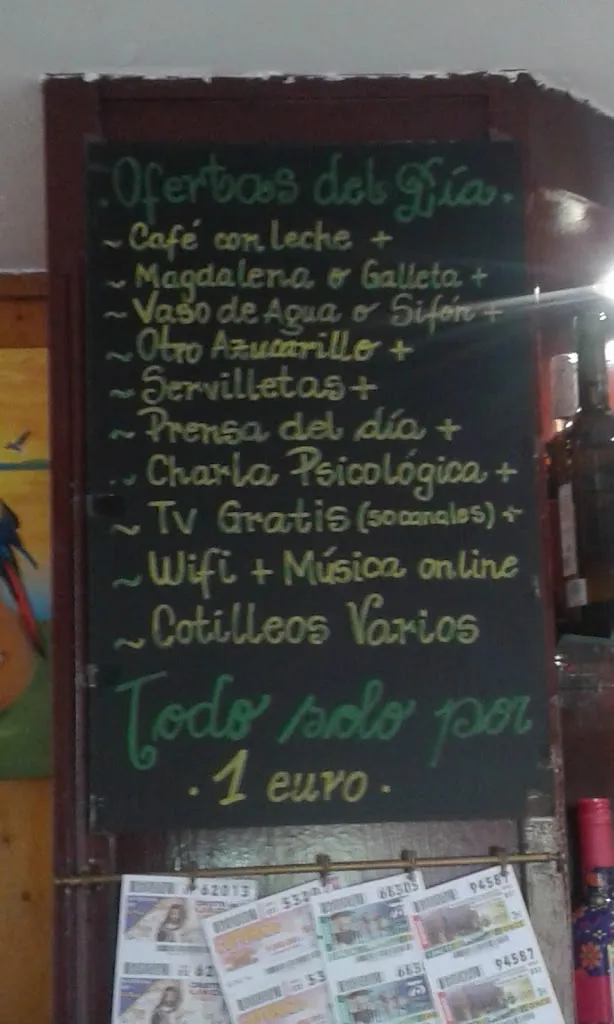 Ofertas del Día.
~ Café con leche +
~ Magdalena o Galleta +
~ Vaso de Agua o Sifón +
~ Otro Azucarillo +
~ Servilletas +
~ Prensa del día +
~ Charla Psicológica +
~ TV Gratis (50 canales) +
~ Wifi + Música online
~ Cotilleos Varios
Todo solo por
· 1 euro ·
62013
66305
94587
94587